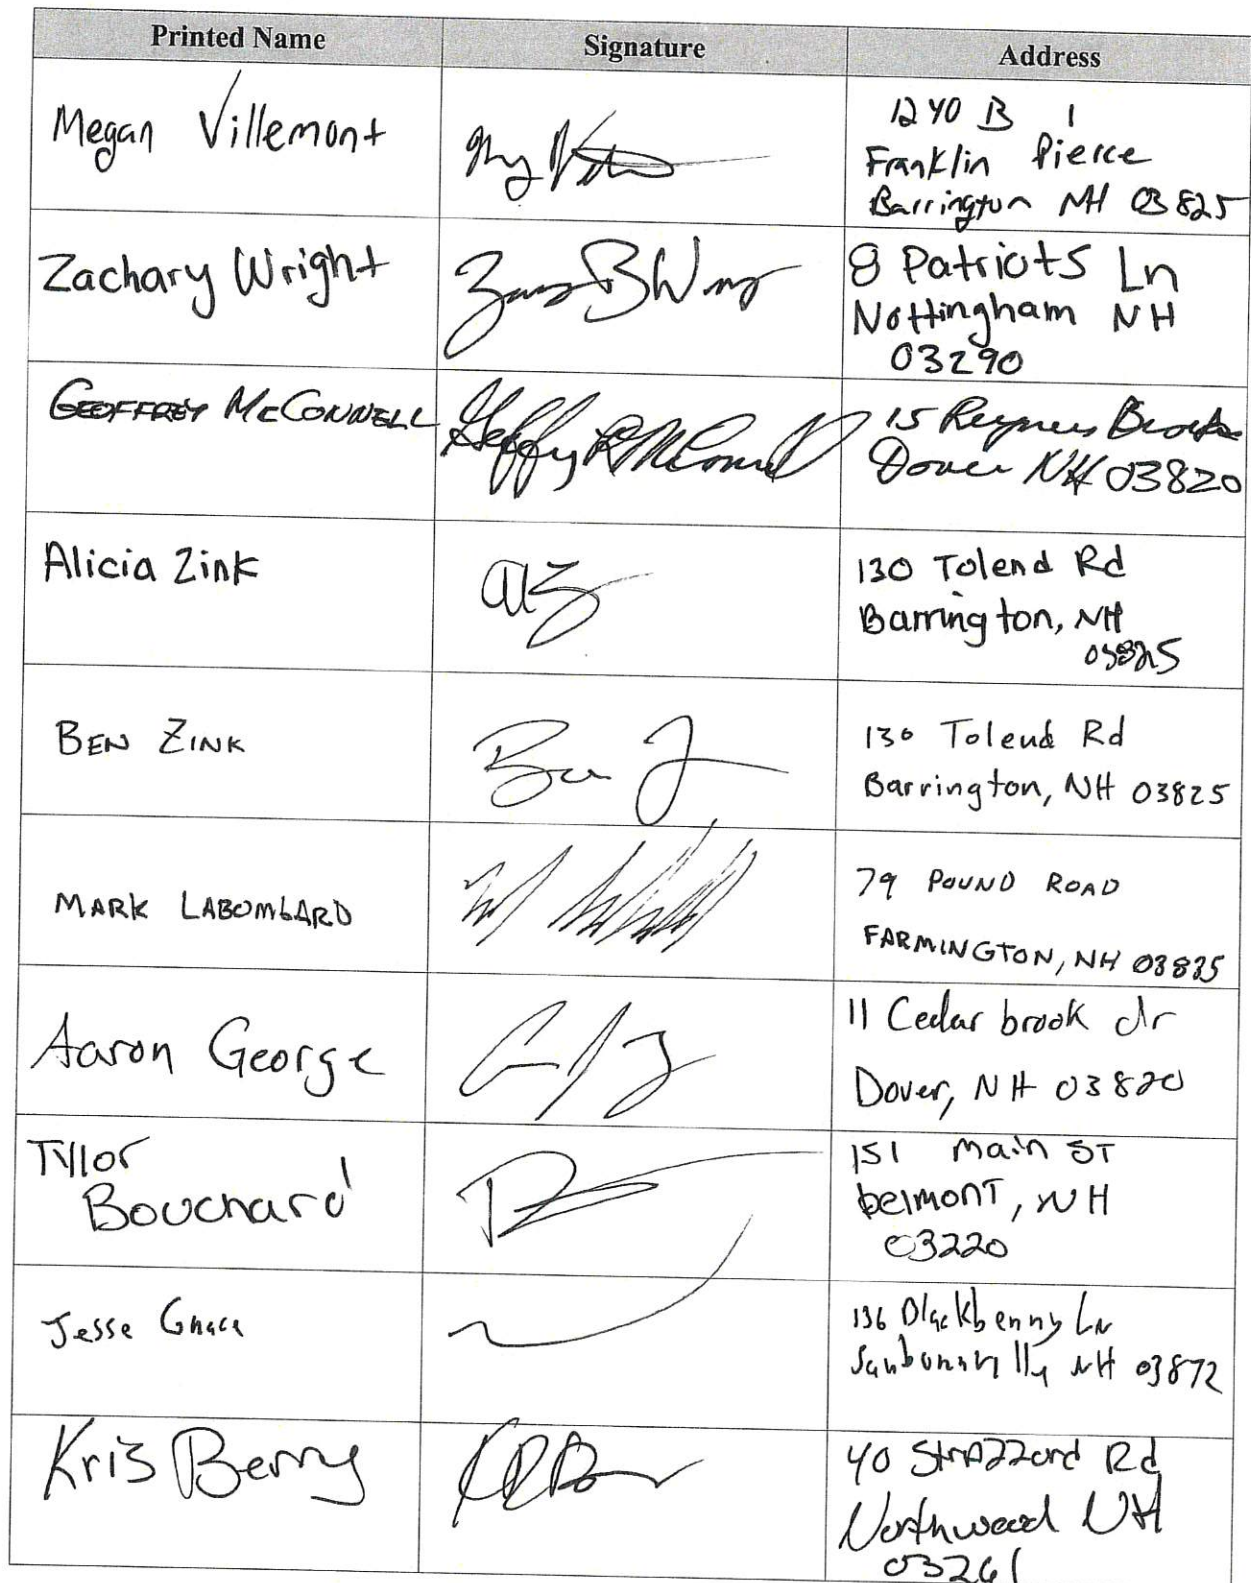 Printed Name Signature Address
Megan Villemont
1240 B 1
Franklin Pierce
Barrington NH 03825
Zachary Wright
8 Patriots Ln
Nottingham NH
03290
GEOFFREY MCCONNELL
15 Reyners Brook
Dover NH 03820
Alicia Zink
130 Tolend Rd
Barrington, NH
03825
BEN ZINK
130 Tolend Rd
Barrington, NH 03825
MARK LABOMBARD
79 POUND ROAD
FARMINGTON, NH 03835
Aaron George
11 Cedar brook dr
Dover, NH 03820
Tyllor
Bouchard
151 Main ST
belmont, NH
03220
Jesse
136 Blackberry Ln
NH 03872
Kris Berry
40 Rd
Northwood NH
03261